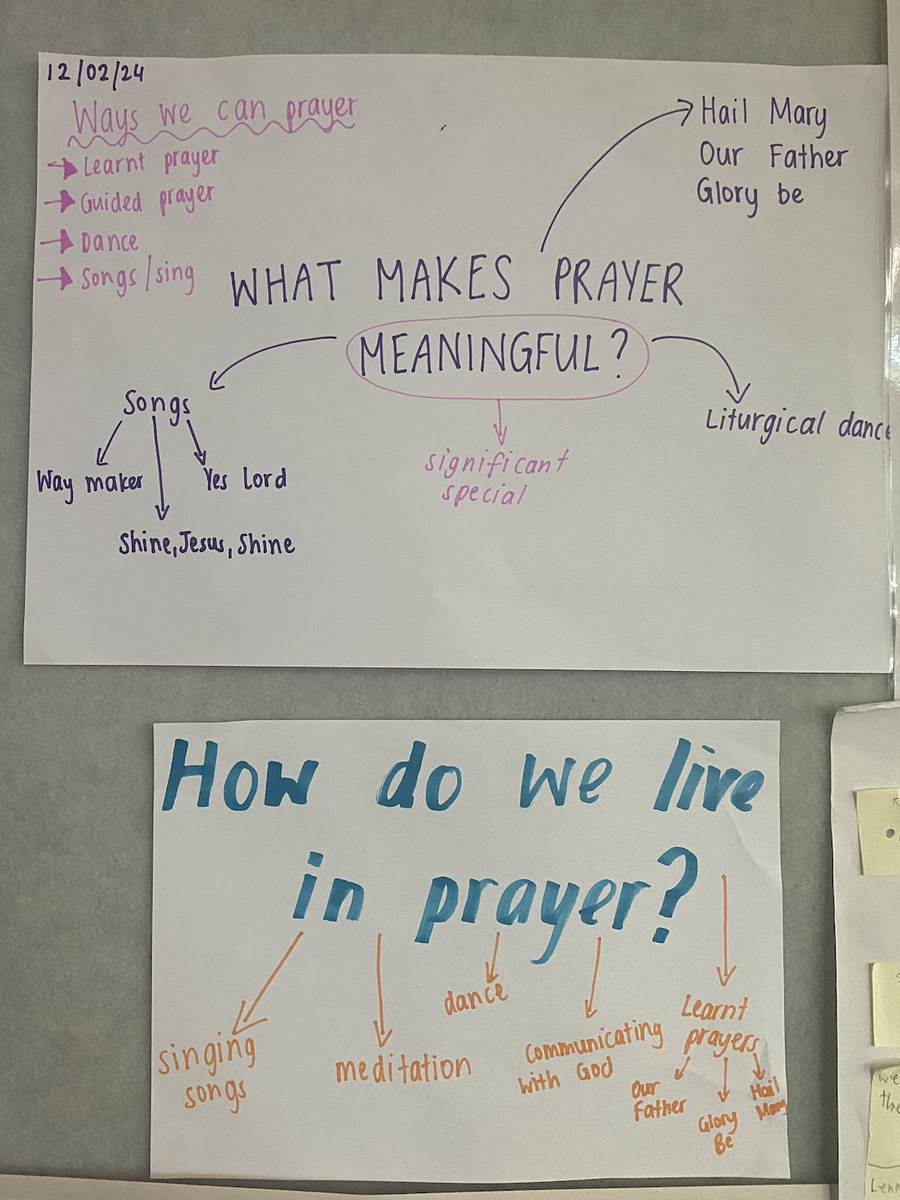 12/02/24
Ways we can prayer
Learnt prayer
Guided prayer
Dance
Songs/sing
Hail Mary
Our Father
Glory be
WHAT MAKES PRAYER
MEANINGFUL?
Songs
Way maker
Yes Lord
Shine, Jesus, Shine
significant
special
Liturgical dance
How do we live
in prayer?
singing
songs
meditation
dance
communicating
with God
Learnt
prayers
Our
Father
Glory
Be
Hail
Mary
we
the